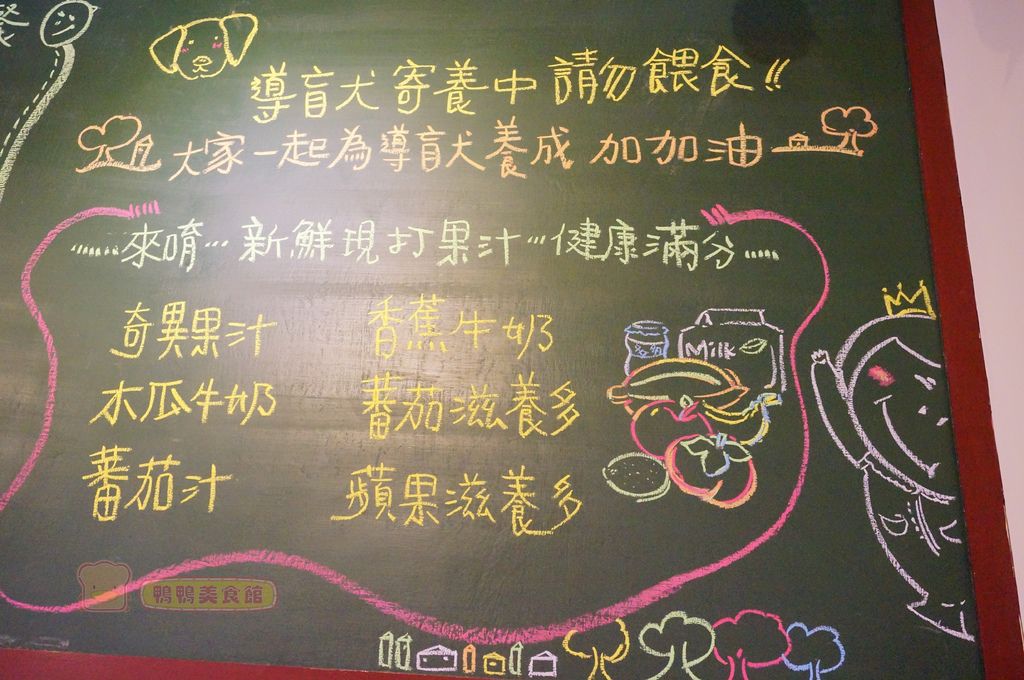 餐
導盲犬寄養中 請勿餵食!!
大家一起為導盲犬養成 加加油
......來唷...新鮮現打果汁...健康滿分......
奇異果汁 香蕉牛奶
木瓜牛奶 蕃茄滋養多
蕃茄汁 蘋果滋養多
Milk
鴨鴨美食館